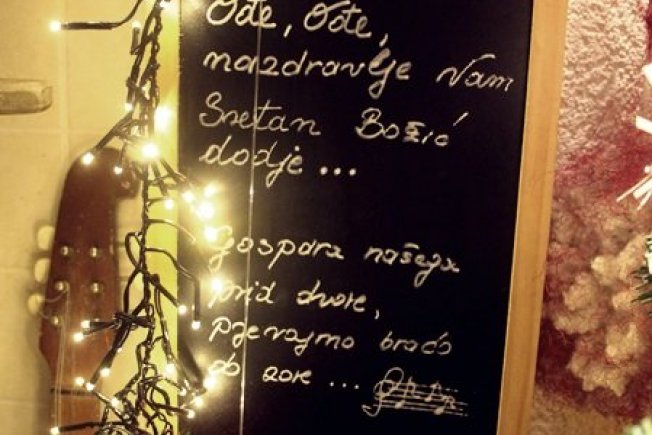 Ođe, Ođe,
nazdravlje Vam
Sretan Božić
dodje ...
Gospara našega
prid dvore,
pjevajmo braćo
do zore ...